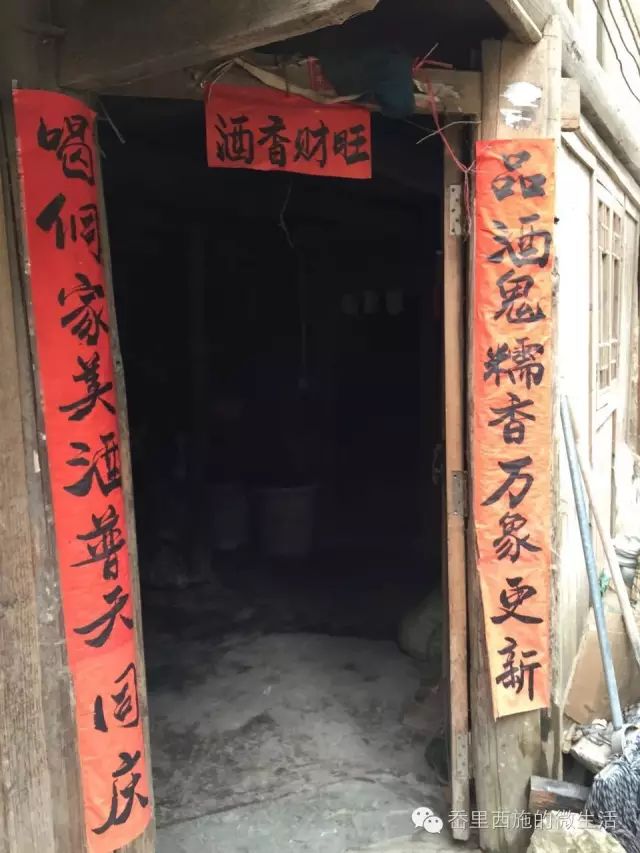 酒香财旺
品酒鬼糯香万象更新
喝侗家美酒普天同庆
岙里西施的微生活